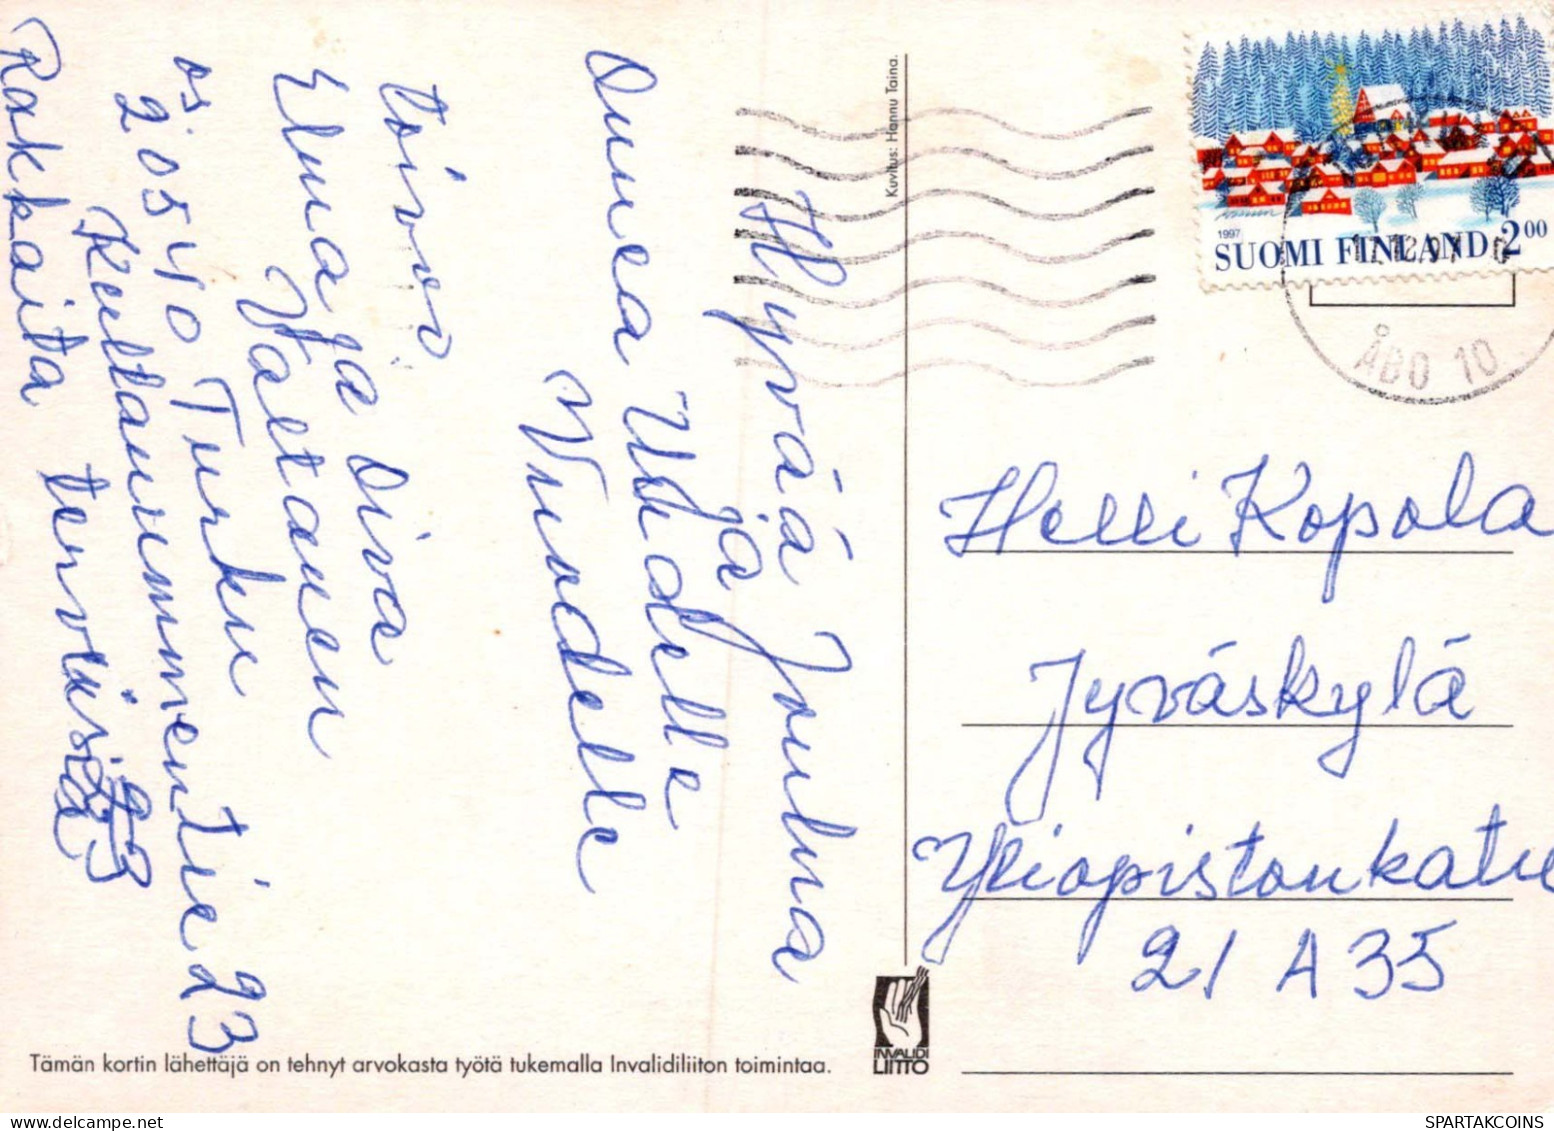 Hyvää Joulua
ja
Onnea Uudelle
Vuodelle
toivoi
Elma ja Oiva
Valtanen
os
20540 Turku
Keltarinnmentie 23
Rakkaita terveisiä
Kuvitus: Hannu Taina.
1997
SUOMI FINLAND 2 00
ÅBO 10
Helli Kopola
Jyväskylä
Yliopistonkatu
21 A 35
INVALIDI
LIITTO
Tämän kortin lähettäjä on tehnyt arvokasta työtä tukemalla Invalidiliiton toimintaa.
SPARTAKCOINS